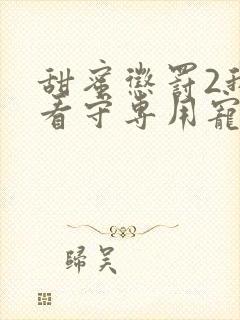 甜蜜懲罰2我
看守專用寵
歸吴